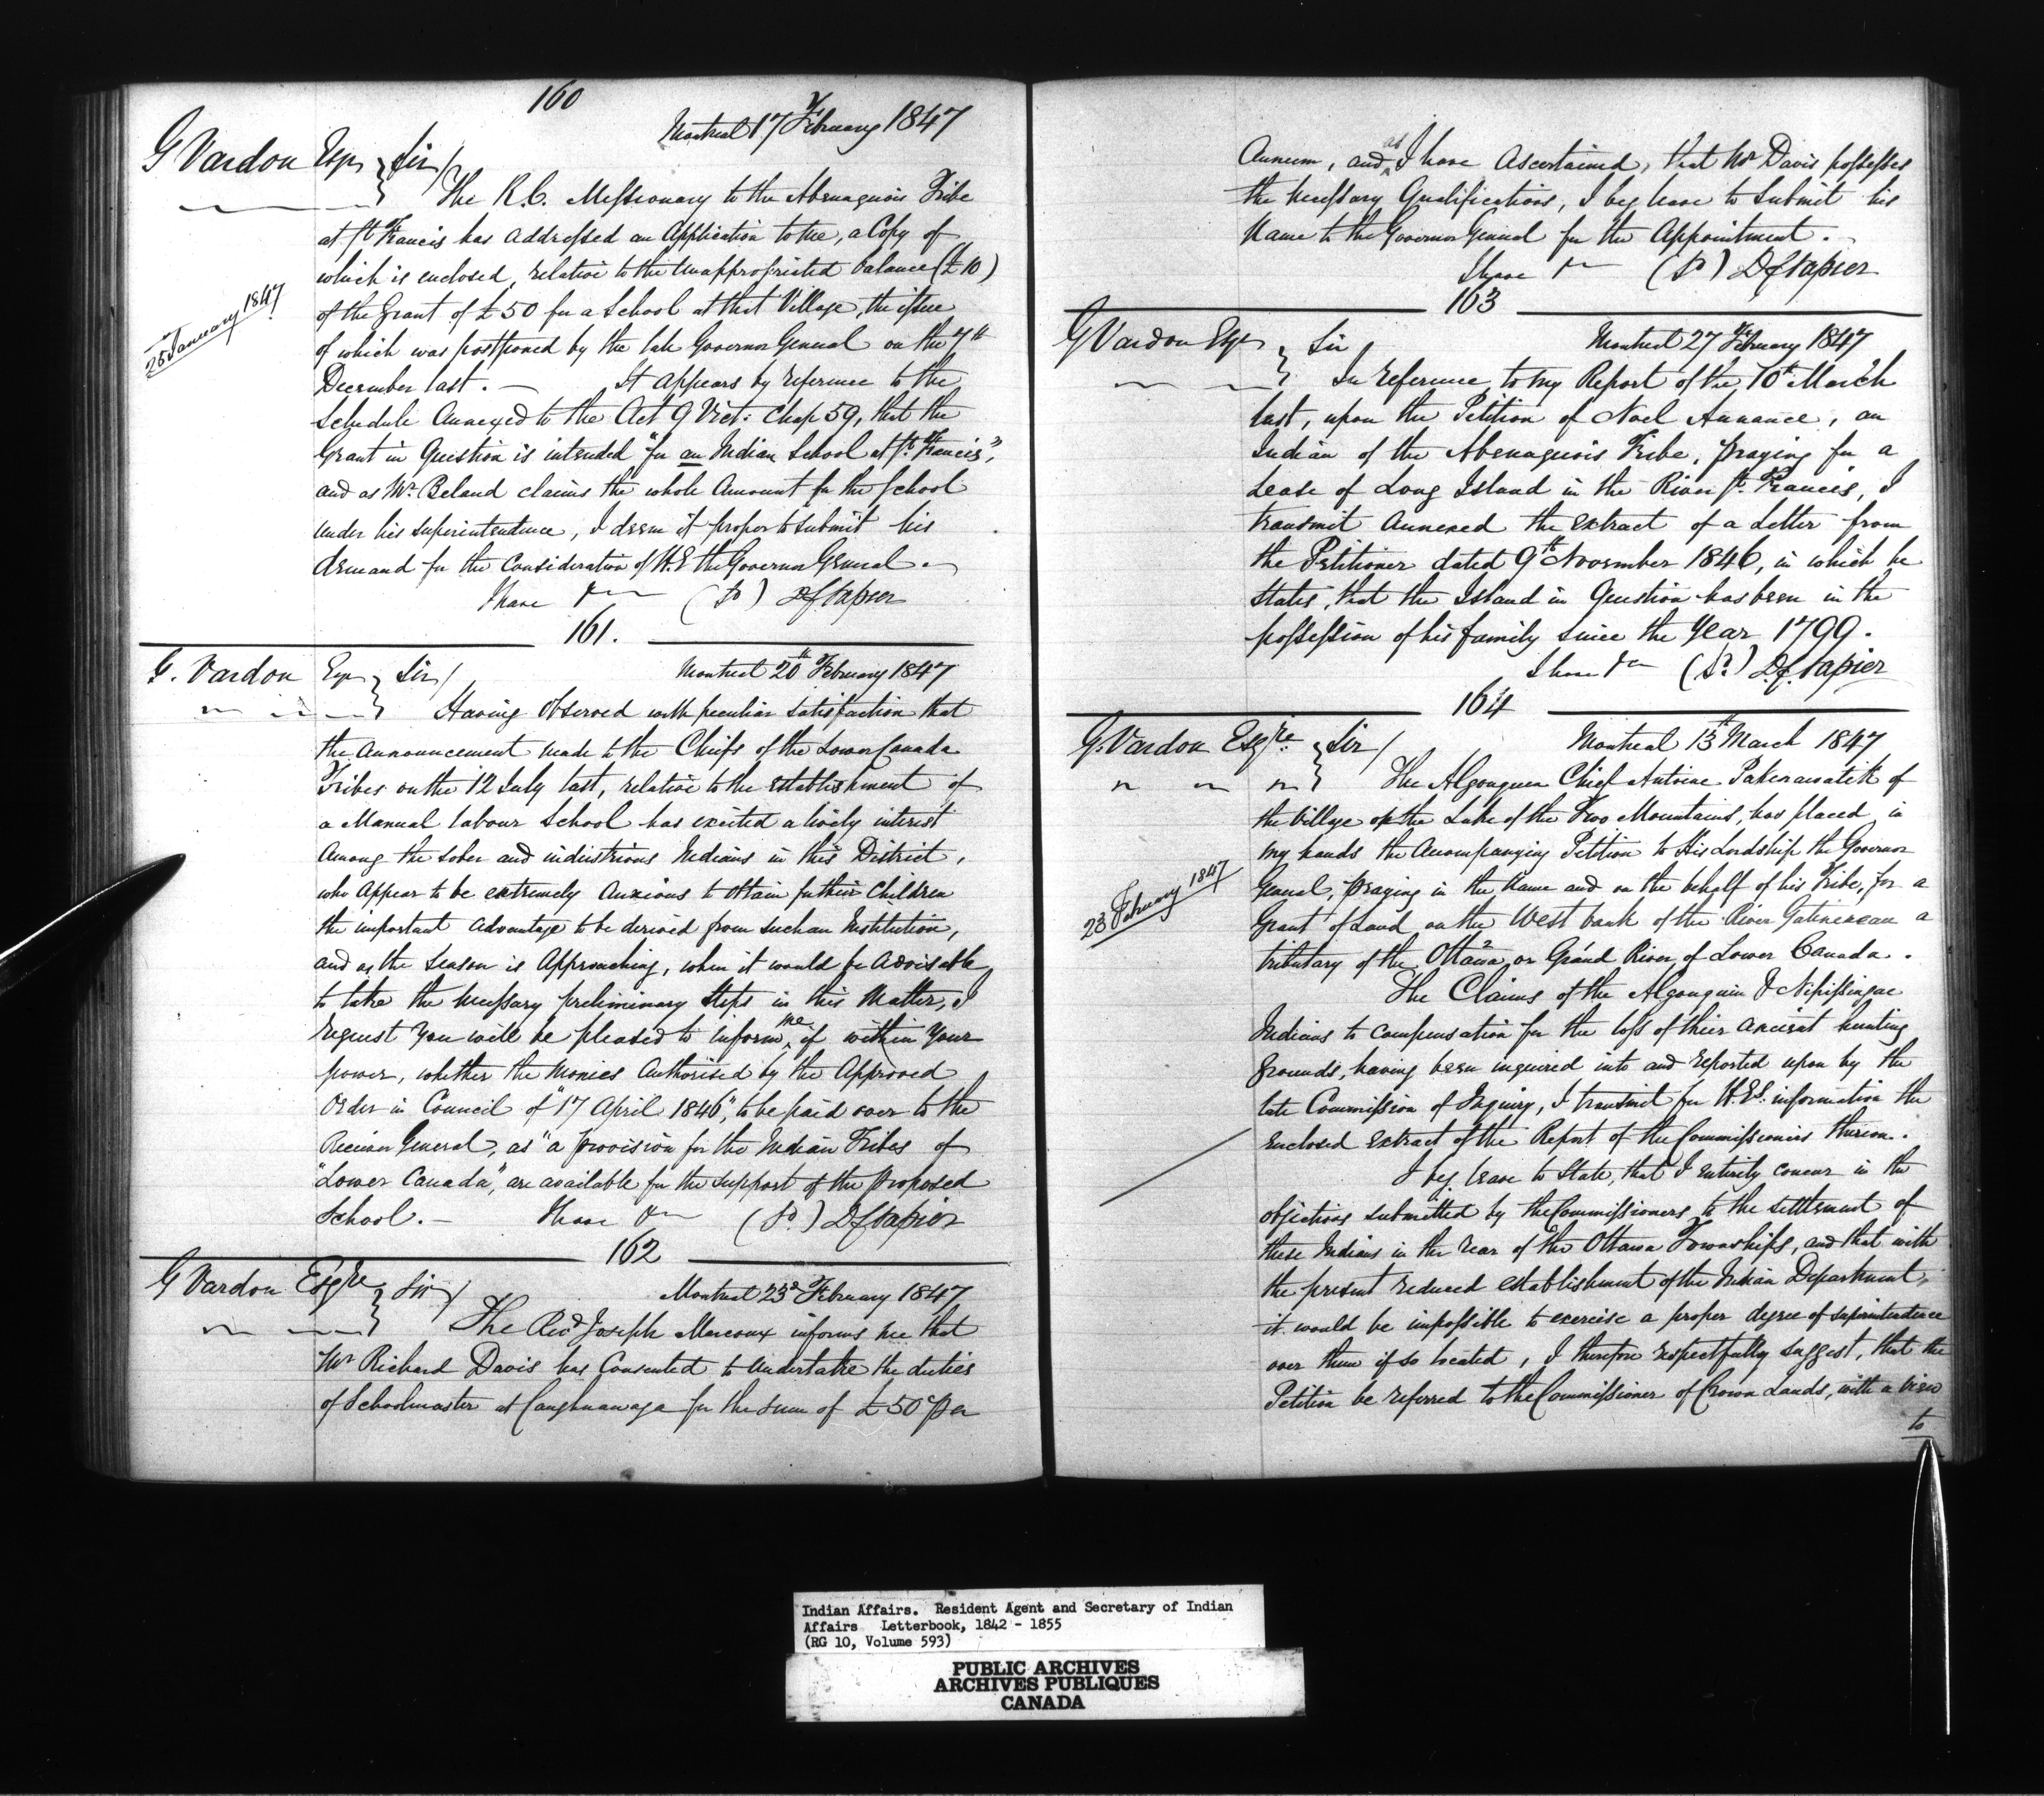 160
Montreal 17 February 1847
G Vardon Esqr Sir/
The R.C. Missionary to the Abenaquois Tribe
at St Francis has addressed an Application to me, a Copy of
which is enclosed, relative to the Unappropriated balance (£10)
25 January 1847
of the Grant of £50 for a School at that Village, the issue
of which was postponed by the late Governor General on the 7th
December last. — It appears by reference to the
Schedule Annexed to the Act 9 Vict: Chap 59, that the
Grant in Question is intended "for an Indian School at St. Francis",
and as Mr. Beland claims the whole Amount for the School
under his Superintendence, I deem it proper to submit his
demand for the Consideration of H.E the Governor General.
I have &c (Sd) DC Napier
161.
G. Vardon Esqr Sir/
Montreal 20th February 1847
Having observed with peculiar satisfaction that
the Announcement made to the Chiefs of the Lower Canada
Tribes on the 12 July last, relative to the establishment of
a Manual labour School has excited a lively interest
Among the sober and industrious Indians in this District,
who Appear to be extremely Anxious to obtain for their Children
the important advantage to be derived from such an Institution,
and as the Season is Approaching, when it would be Advisable
to take the necessary preliminary Steps in this Matter, I
request you will be pleased to inform me, if within Your
power, whether the monies Authorised by the Approved
Order in Council of "17 April 1846", to be paid over to the
Receiver General, as "a provision for the Indian Tribes of
"Lower Canada", are available for the support of the proposed
School. — I have &c (Sd.) DC Napier
162
G Vardon Esqre Sir/
Montreal 23d February 1847
The Revd Joseph Marcoux informs me that
Mr Richard Davis has Consented to undertake the duties
of Schoolmaster at Caughnawaga for the sum of £50 per
Annum, and as I have Ascertained, that Mr Davis possesses
the necessary Qualifications, I beg leave to submit his
Name to the Governor General for the Appointment.
I have &c (Sd) DC Napier
163
G Vardon Esqr Sir
Montreal 27 February 1847
In reference to my Report of the 10th March
last, upon the Petition of Noel Annance, an
Indian of the Abenaquois Tribe, praying for a
Lease of Long Island in the River St. Francis, I
transmit Annexed the extract of a Letter from
the Petitioner dated 9th November 1846, in which he
states, that the Island in Question has been in the
possession of his family since the Year 1799.
I have &c (Sd.) D.C. Napier
164
G. Vardon Esqre. Sir/
Montreal 13th March 1847
The Algonquin Chief Antoine Pakinawatik of
the Village of the Lake of the Two Mountains, has placed in
my hands the Accompanying Petition to His Lordship the Governor
23 February 1847
General, praying in the Name and on the behalf of his Tribe, for a
Grant of Land on the West bank of the River Gatineau a
tributary of the Ottawa or Grand River of Lower Canada.
The Claims of the Algonquin & Nipissingue
Indians to compensation for the loss of their Ancient hunting
Grounds, having been inquired into and reported upon by the
late Commission of Inquiry, I transmit for H.Es. information the
enclosed extract of the Report of the Commissioners thereon.
I beg leave to State, that I entirely concur in the
objections submitted by the Commissioners to the settlement of
these Indians in the rear of the Ottawa Townships, and that with
the present reduced establishment of the Indian Department,
it would be impossible to exercise a proper degree of superintendence
over them if so located, I therefore respectfully suggest, that the
Petition be referred to the Commissioner of Crown Lands, with a view
to
Indian Affairs. Resident Agent and Secretary of Indian
Affairs Letterbook, 1842 - 1855
(RG 10, Volume 593)
PUBLIC ARCHIVES
ARCHIVES PUBLIQUES
CANADA